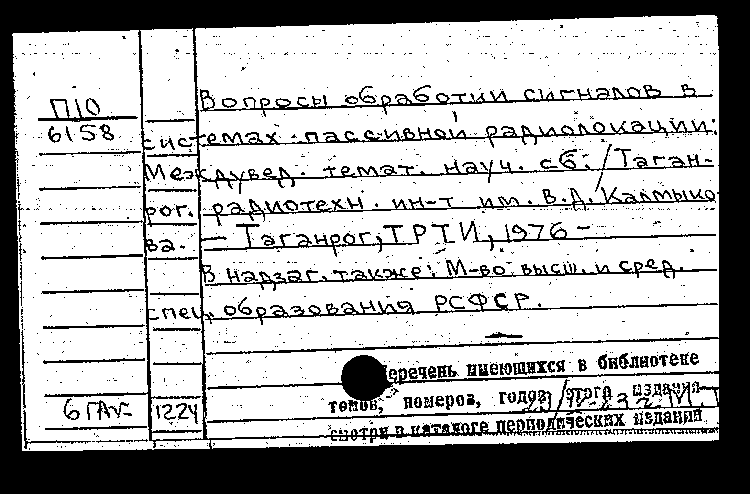 П10
6158
Вопросы обработки сигналов в
системах пассивной радиолокации:
Междувед. темат. науч. сб. / Таган-
рог. радиотехн. ин-т им. В.Д. Калмыко
ва. — Таганрог, ТРТИ, 1976 -
В надзаг. также: М-во высш. и сред.
спец. образования РСФСР.
Перечень имеющихся в библиотеке
томов, номеров, годов этого издания
смотри в каталоге периодических изданий
1224